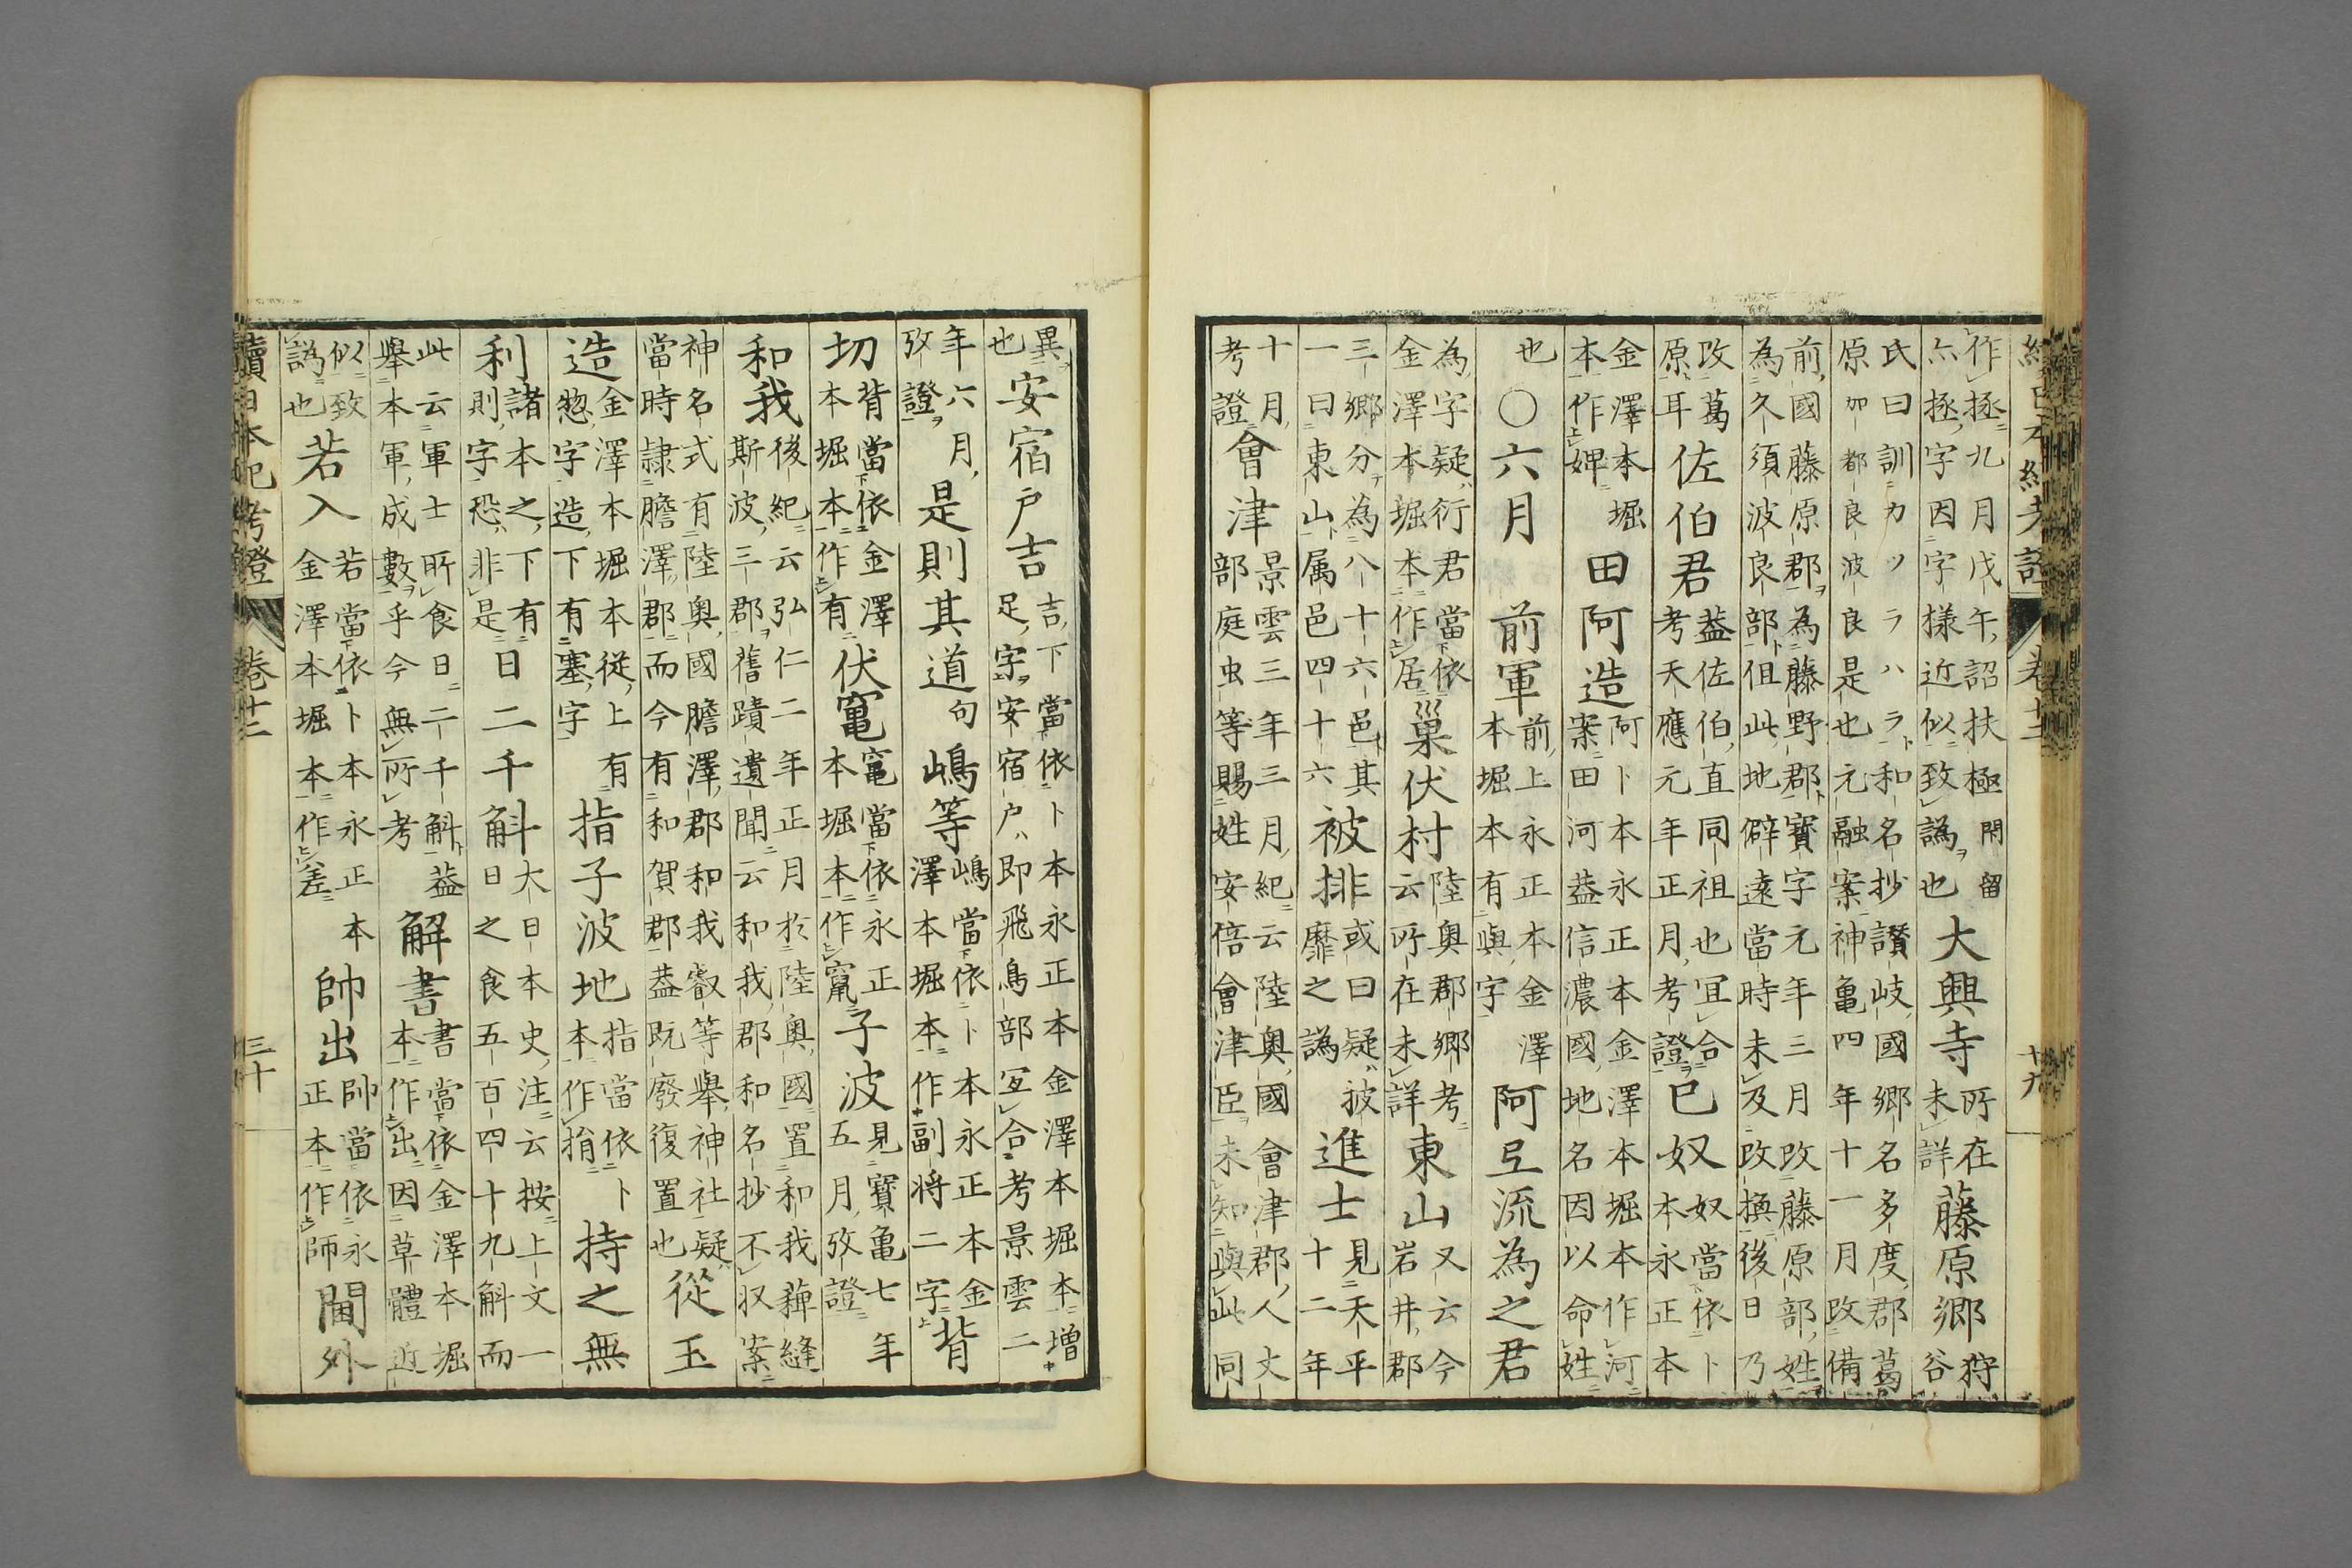 續日本紀考證 卷十二 十九
作拯九月戊午詔扶極閑留
亦拯字因字樣近似致譌也
大興寺
所在
未詳
藤原郷
狩
谷
氏曰訓カツラハラ和名抄讃岐國郷名多度郡葛
原加都良波良是也元融案神亀四年十一月改備
前國藤原郡為藤野郡寶字元年三月改藤原部姓
為久須波良部伹此地僻遠當時未及改換後日乃
改葛
原耳
佐伯君
葢佐伯直同祖也宜合
考天應元年正月考證
已奴
奴當依卜
本永正本
金澤本堀
本作婢
田阿造
阿卜本永正本金澤本堀本作河
案田河葢信濃國地名因以命姓
也〇六月 前軍
前上永正本金澤
本堀本有與字
阿弖流為之君
為字疑衍君當依
金澤本堀本作居
巢伏村
陸奥郡郷考
云所在未詳
東山
又云今
岩井郡
三郷分為八十六邑其
一曰東山属邑四十六
被排
或曰疑披
靡之譌
進士
見天平
十二年
十月
考證
會津
景雲三年三月紀云陸奥國會津郡人丈
部庭虫等賜姓安倍會津臣未知與此同
異
也
安宿戸吉
吉下當依卜本永正本金澤本堀本增
足字安宿戸即飛鳥部宜合考景雲二
年六月
攷證
是則其道句嶋等
嶋當依卜本永正本金
澤本堀本作副将二字
背
切
背當依金澤
本堀本作有
伏竃
竃當依永正
本堀本作竄
子波
見寶亀七年
五月攷證
和我
後紀云弘仁二年正月於陸奥國置和我薭縫
斯波三郡舊蹟遺聞云和我郡和名抄不収案
神名式有陸奥國膽澤郡和我叡等擧神社疑
當時隷膽澤郡而今有和賀郡葢既廢復置也
從玉
造
金澤本堀本從上有
惣字造下有塞字
指子波地
指當依卜
本作㨈
持之無
利
諸本之下有
則字恐非是
日二千斛
大日本史注云按上文一
日之食五百四十九斛而
此云軍士所食日二千斛葢
擧本軍成數乎今無所考
解書
書當依金澤本堀
本作出因草體近
似致
譌也
若入
若當依卜本永正本
金澤本堀本作差
帥出
帥當依永
正本作師
閫外
續日本紀考證 卷十二 三十